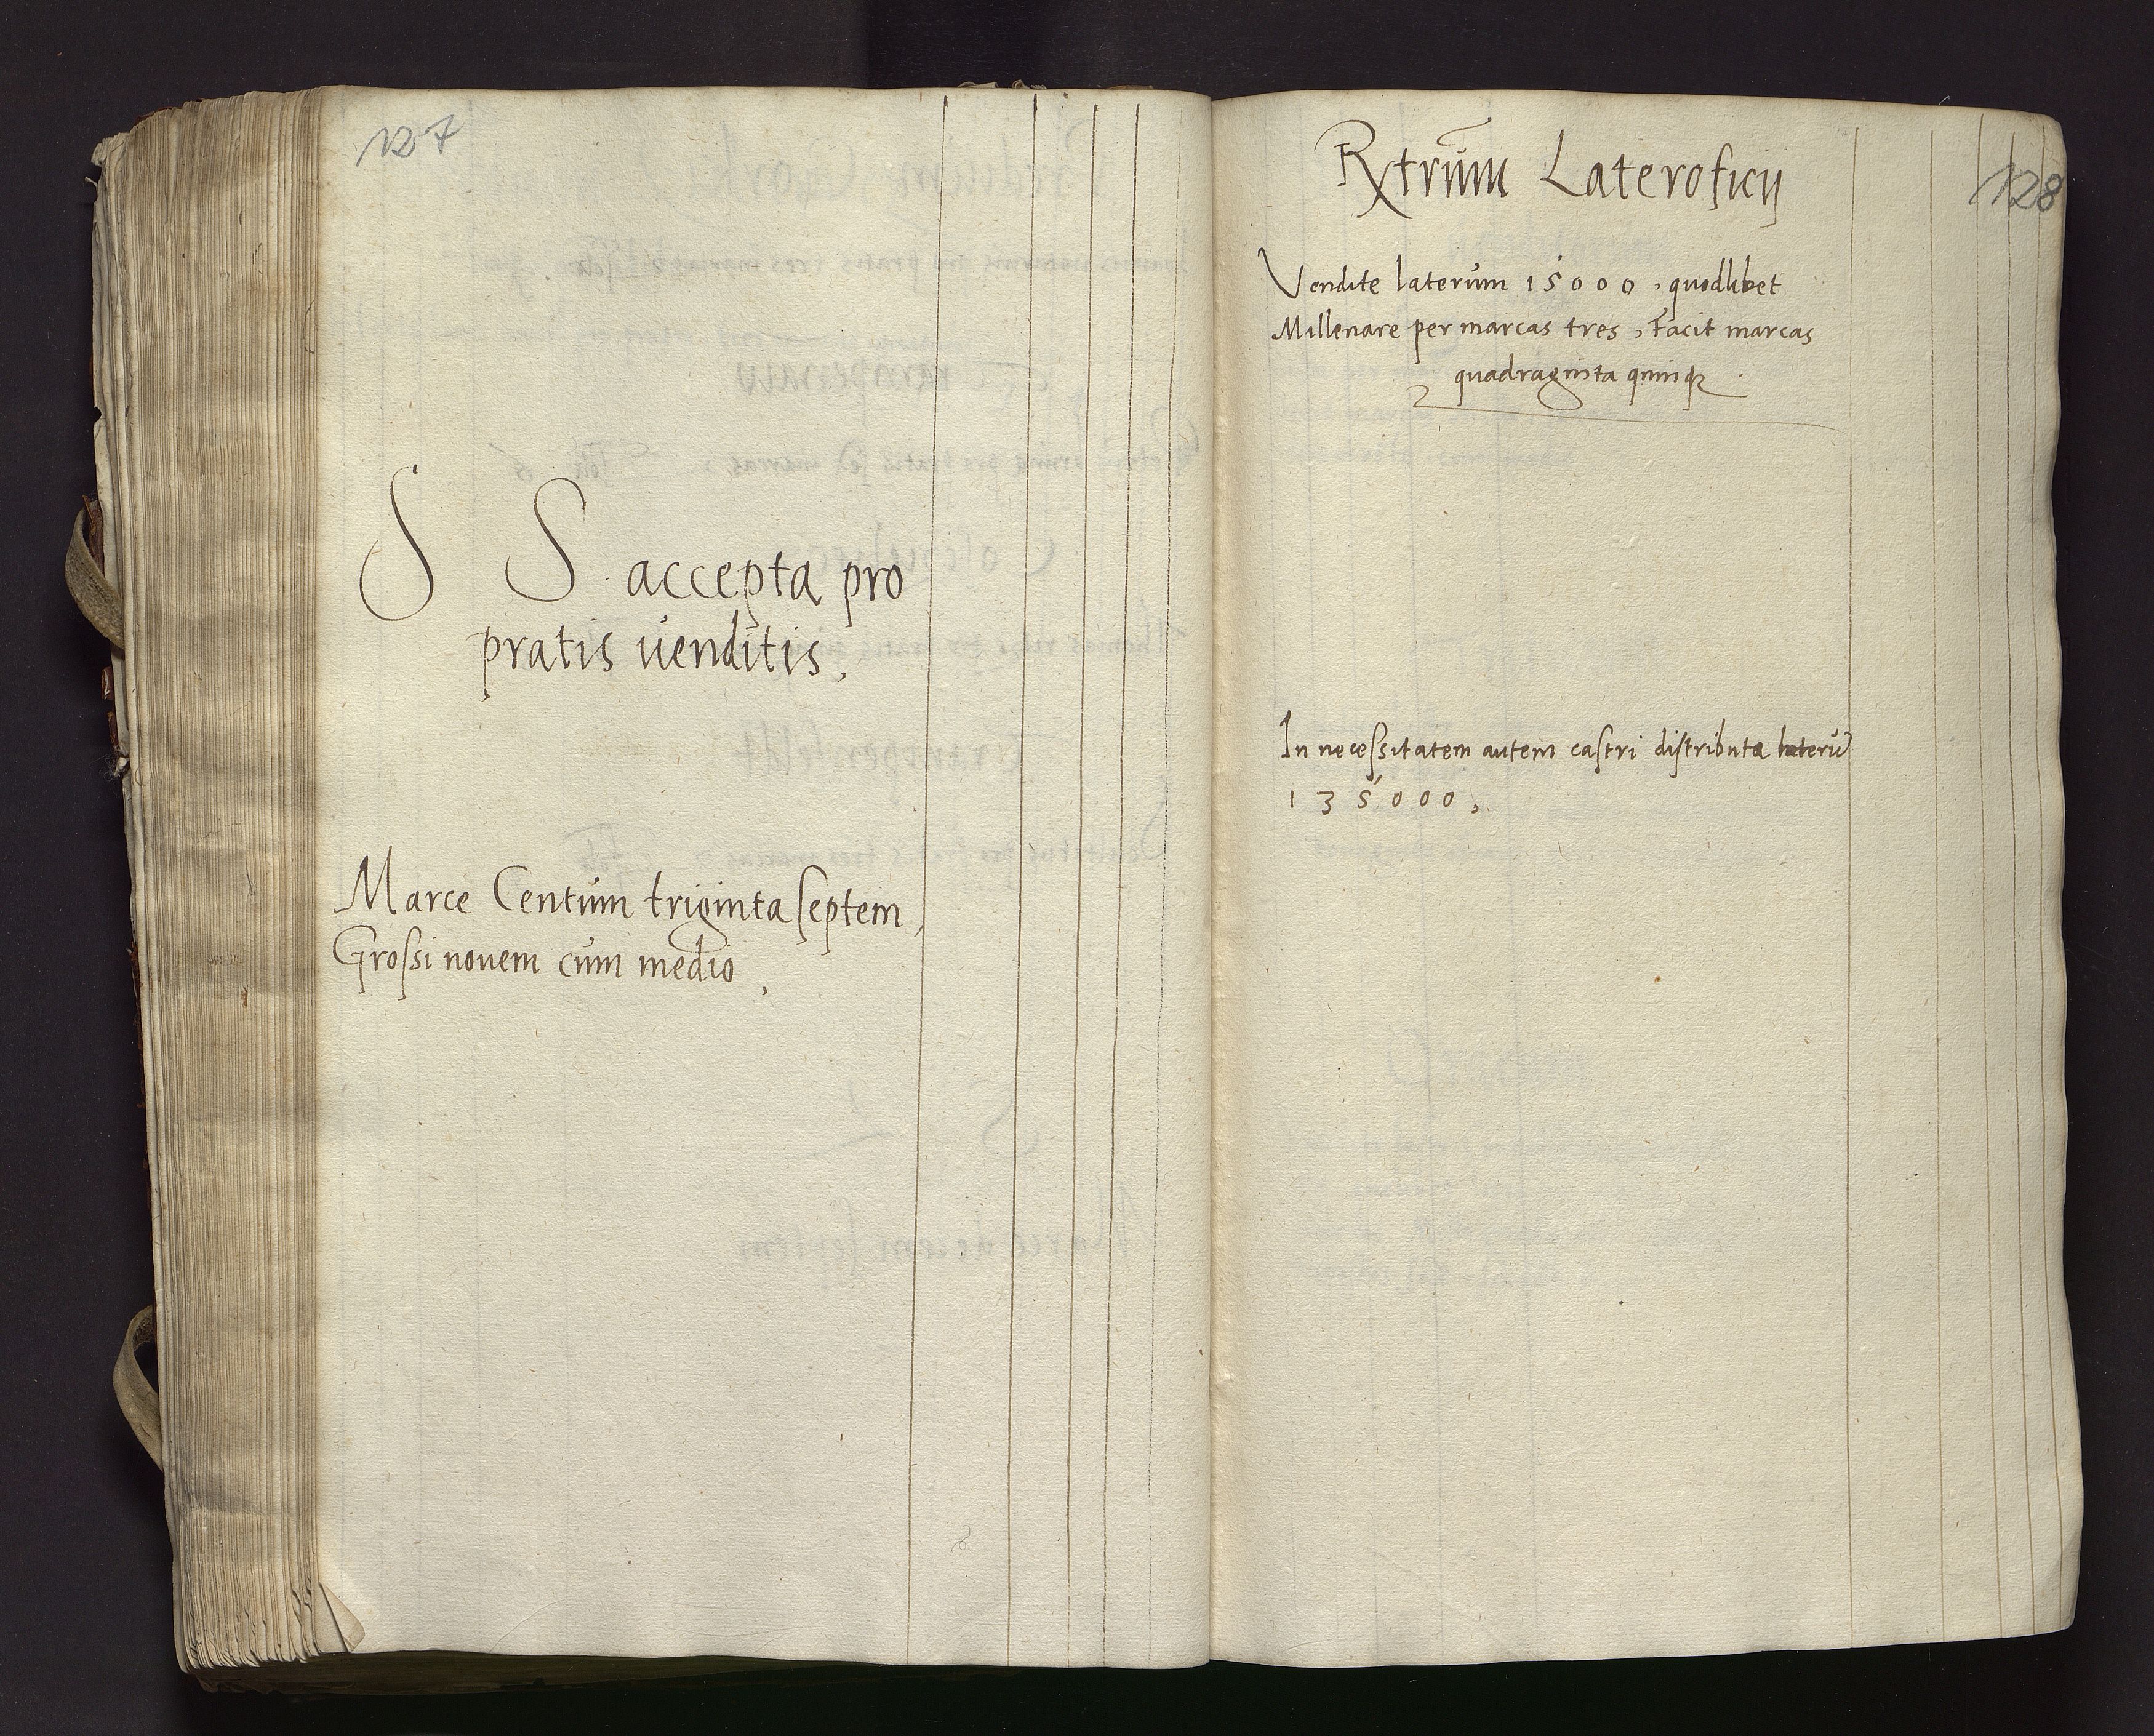 127
S S accepta pro
pratis venditis,
Marce Centum triginta septem,
Grossi novem cum medio,
128
Rxtrūm Lateroficij
Vendite laterum 15000, quodlibet
Millenare per marcas tres, Facit marcas
quadraginta quinqꝫ
In necessitatem autem castri distributa laterū
135000,